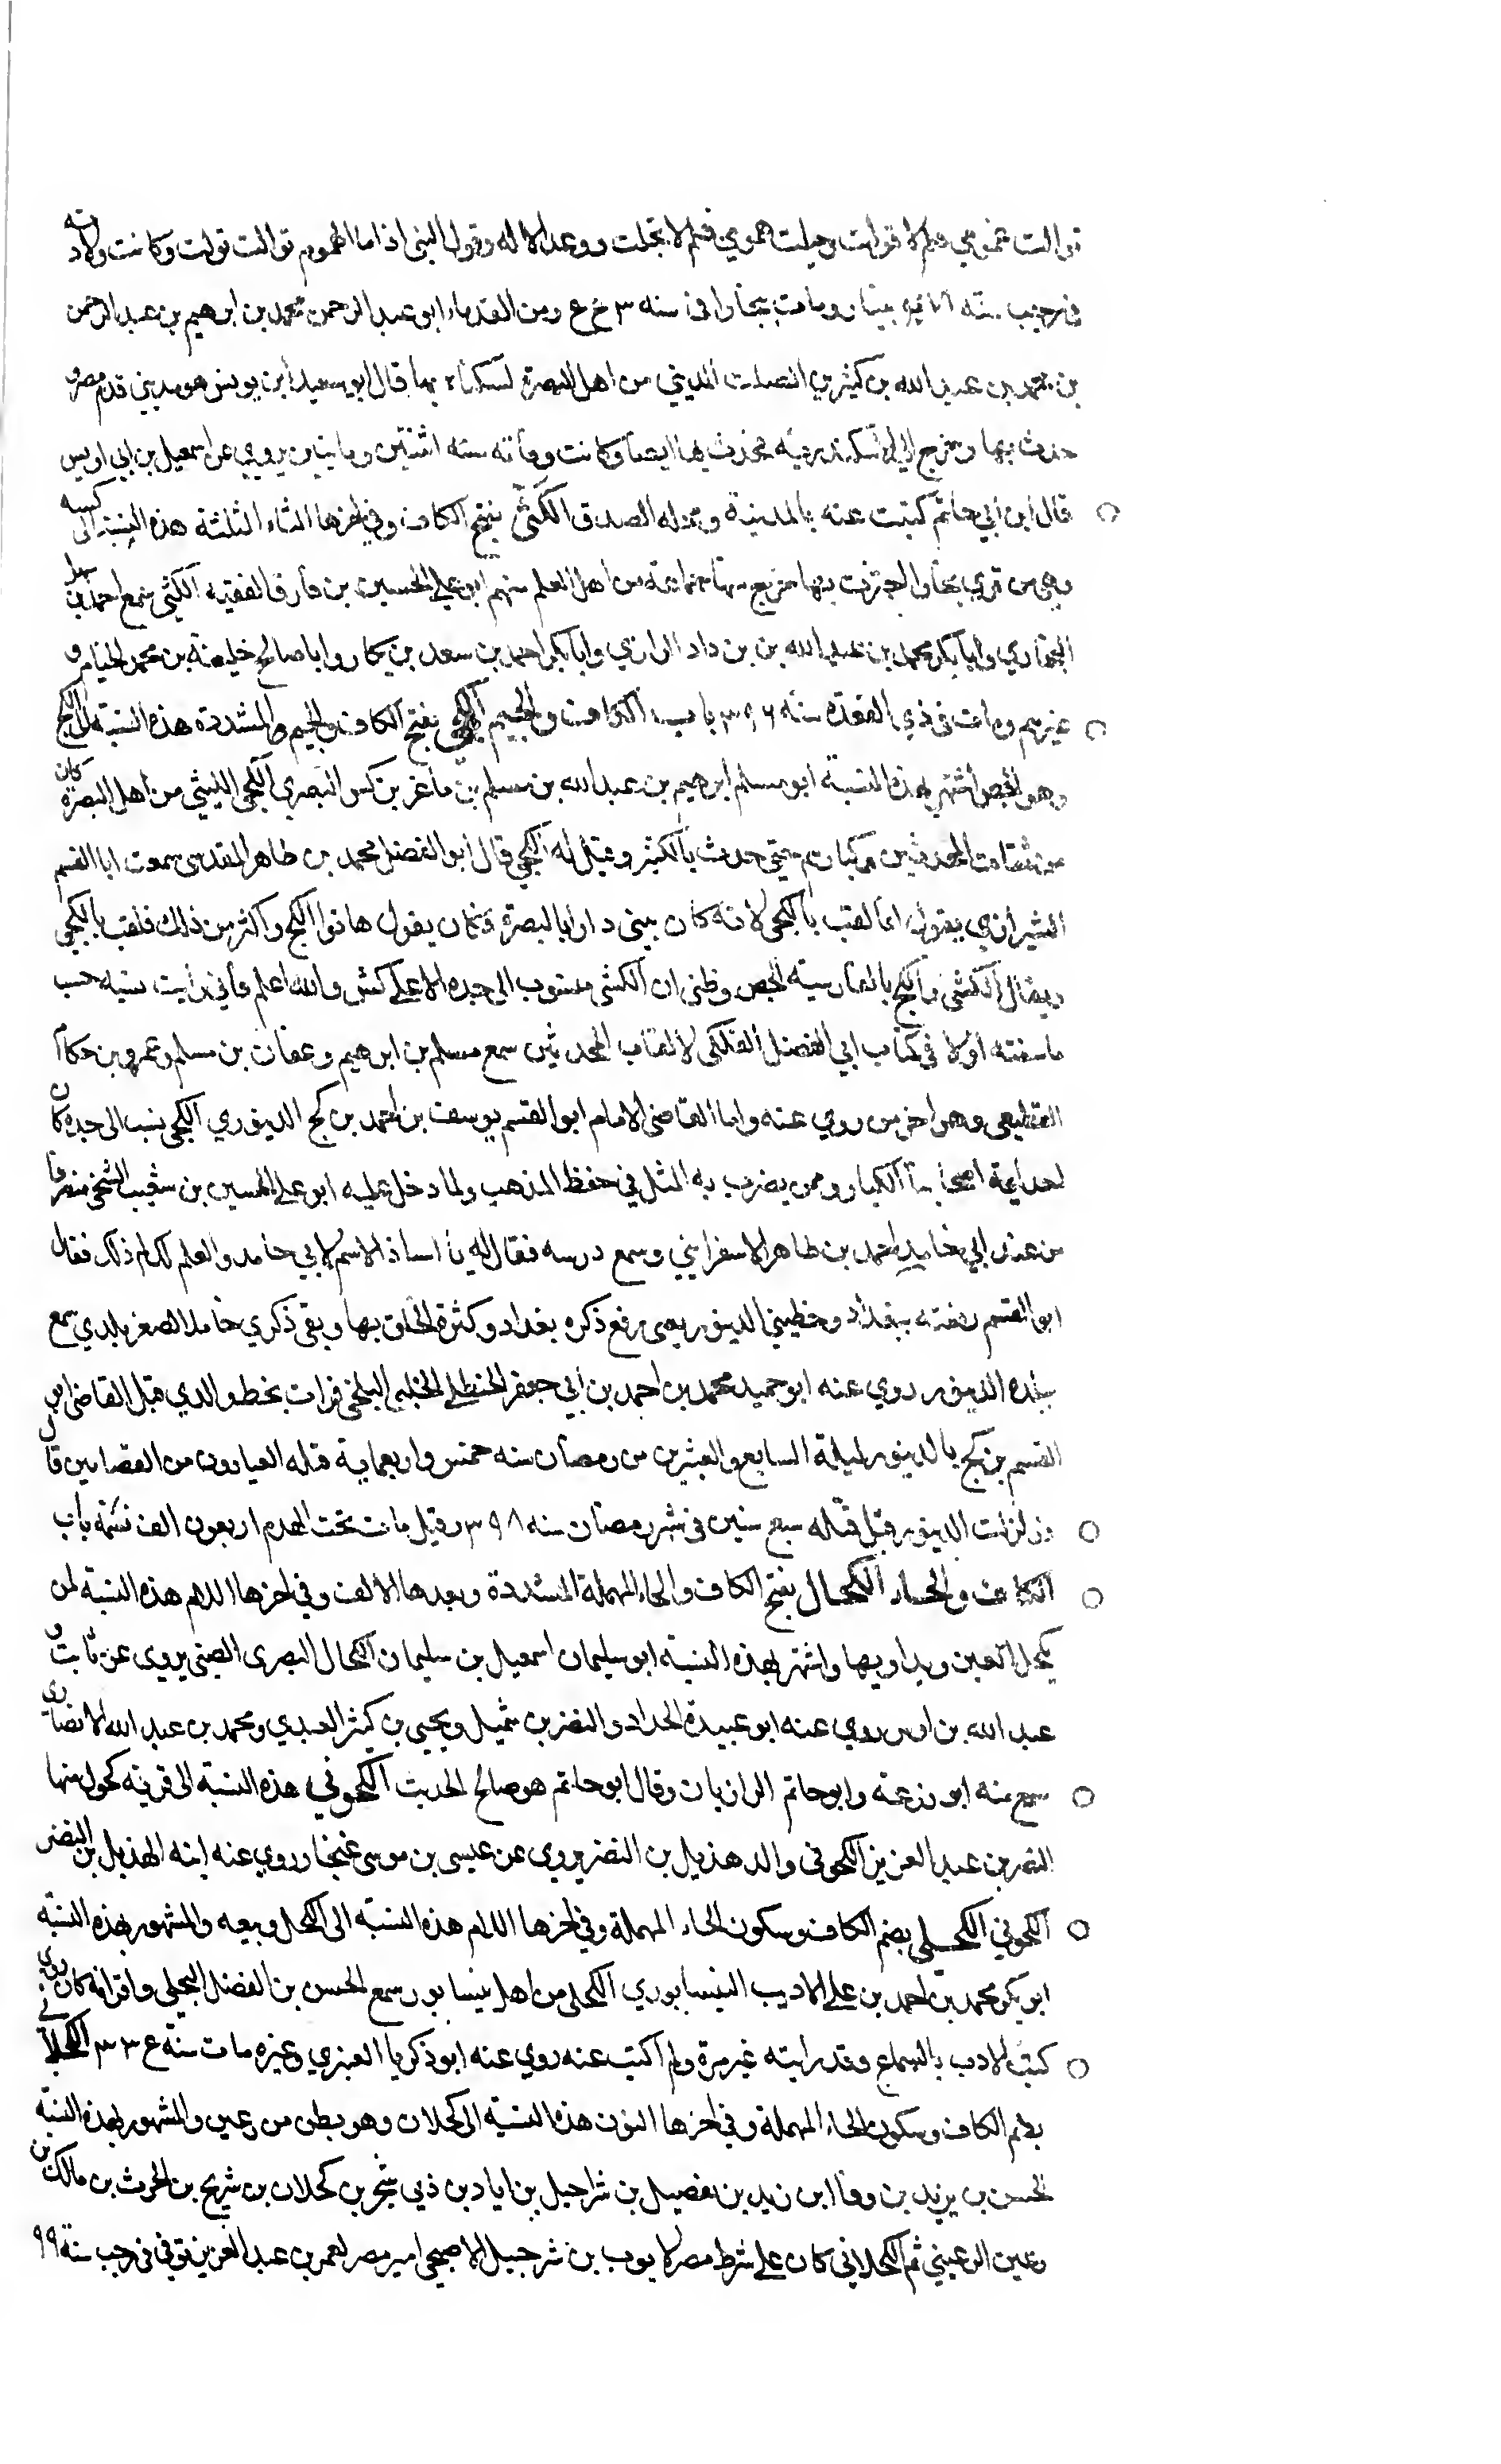 توالت غمومي فلم لا تولت وجلت همومي فلم لا تجلت ووعد الاله وقول النبي اذا ما الهموم توالت تولت وكانت ولادته
في رجب سنة بنيسابور ومات ببخارا في سنه ٣ ع ع ومن القدماء ابو عبد الرحمن محمد بن ابرهيم بن عبد الرحمن
بن محمد بن عبد الله بن كثير بن الصلت المديني من اهل البصرة لسكناه بها قال ابو سعيد ابن يونس هو مديني قدم مصر و
حدث بها وخرج الى الاسكندرية فحدث بها ايضا وكانت وفاته سنه اثنتين ومايتين يروي عن اسمعيل بن ابي اويس
قال ابن ابي حاتم كتبت عنه بالمدينة ومحله الصدق الكثي بفتح الكاف وفي اخرها الثاء الثلثة هذه النسبة الى كسه
وهي من قري بخارا اجتزت بها خرج منها جماعة من اهل العلم منهم ابو علي الحسين بن فارق الفقيه الكثي سمع احمد بن سهل
البخاري وابا بكر محمد بن عبد الله بن بن داد الرازي وابا بكر احمد بن سعد بن بكار وابا صالح خليفة بن محمد الخيام و
غيرهم ومات في ذي القعدة سنه ٣٩٦ باب الكاف والجيم الكجي بفتح الكاف والجيم المشددة هذه النسبة الى الكج
وهو الجص اشتهر بهذه النسبة ابو مسلم ابرهيم بن عبد الله بن مسلم بن ماعز بن كس البصري الكجي الليثي من اهل البصرة كان
من ثقات المحدثين وكبارهم حتى حدث بالكثير وقيل له الكجي قال ابو الفضل محمد بن طاهر المقدسي سمعت ابا القسم
الشيرازي يقول انما لقب بالكجي لانه كان يبني دارا بالبصرة فكان يقول هاتوا الكج واكثر من ذلك فلقب بالكجي
ويقال الكشي والكج بالفارسية الجص وظني ان الكشي منسوب الى جده الاعلى كش والله اعلم فاني رايت نسبه حسب
ما سقته اولا في كتاب ابي الفضل الفلكي لالقاب المحدثين سمع مسلم بن ابرهيم وعفان بن مسلم وعمرو بن حكام
القطيعي وهو اخر من روي عنه واما القاضي الامام ابو القسم يوسف بن احمد بن كج الدينوري الكجي نسب الى جده كان
احد ايمة اصحابنا الكبار وممن يضرب به المثل في حفظ المذهب ولما دخل عليه ابو علي الحسين بن شعيب السنجي منصرفا
من عند ابي حامد احمد بن طاهر الاسفرايني وسمع درسه فقال له يا استاذ الاسم لابي حامد والعلم لك لم ذلك فقال
ابو القسم رفعته بغداد وحطتني الدينور يعني رفع ذكره بغداد وكثرة الخلق بها وبقي ذكري خاملا لصغر بلدي سمع
ببلده الدينور روي عنه ابو حميد محمد بن احمد بن ابي جعفر الحنظلي الخلمي البلخي قرات بخط والدي قتل القاضي ابو
القسم بن كج بالدينور ليلة السابع والعشرين من رمضان سنه خمس واربعماية قتله العيارون من القصابين قال
وزلزلت الدينور قبل قتله سبع سنين في شهر رمضان سنه ٣٩٨ وقيل مات تحت الهدم اربعون الف نسمة باب
الكاف والحاء الكحال بفتح الكاف والحاء المهملة المشددة وبعدها الالف وفي اخرها اللام هذه النسبة لمن
يكحل العين ويداويها واشتهر بهذه النسبة ابو سليمان اسمعيل بن سليمان الكحال البصري الضبي يروي عن ثابت و
عبد الله بن اوس روي عنه ابو عبيدة الحداد والنضر بن شميل ويحيى بن كثير العبدي ومحمد بن عبد الله الانصاري
سمع منه ابو زرعة وابو حاتم الرازيان وقال ابو حاتم هو صالح الحديث الكحولي هذه النسبة الى قرية كحول منها
النضر بن عبد العزيز الكحوني والد هذيل بن النضر يروي عن عيسى بن موسى غنجار روي عنه ابنه الهذيل بن النضر
الكحوني الكحلي بضم الكاف وسكون الحاء المهملة وفي اخرها اللام هذه النسبة الى الكحل وبيعه والمشهور بهذه النسبة
ابو بكر محمد بن احمد بن علي الاديب النيسابوري الكحلي من اهل نيسابور سمع الحسن بن الفضل البجلي واقرانه كان روي
كتب الادب بالسماع وقد رايته غير مرة ولم اكتب عنه روي عنه ابو ذكريا العنبري وغيره مات سنة ٣٣ع الكحلاني
بضم الكاف وسكون الحاء المهملة وفي اخرها النون هذه النسبة الى كحلان وهو بطن من رعين والمشهور بهذه النسبة
الحسن بن يزيد بن وفا ابن زيد بن بفصيل بن شراحيل بن اياد بن ذي شجر بن كحلان بن شريح بن الحرث بن مالك بن
رعين الرعيني ثم الكحلاني كان على شرط مصر لايوب بن شرحبيل الاصبحي امير مصر لعمر بن عبد العزيز توفي في رجب سنة ٩٩